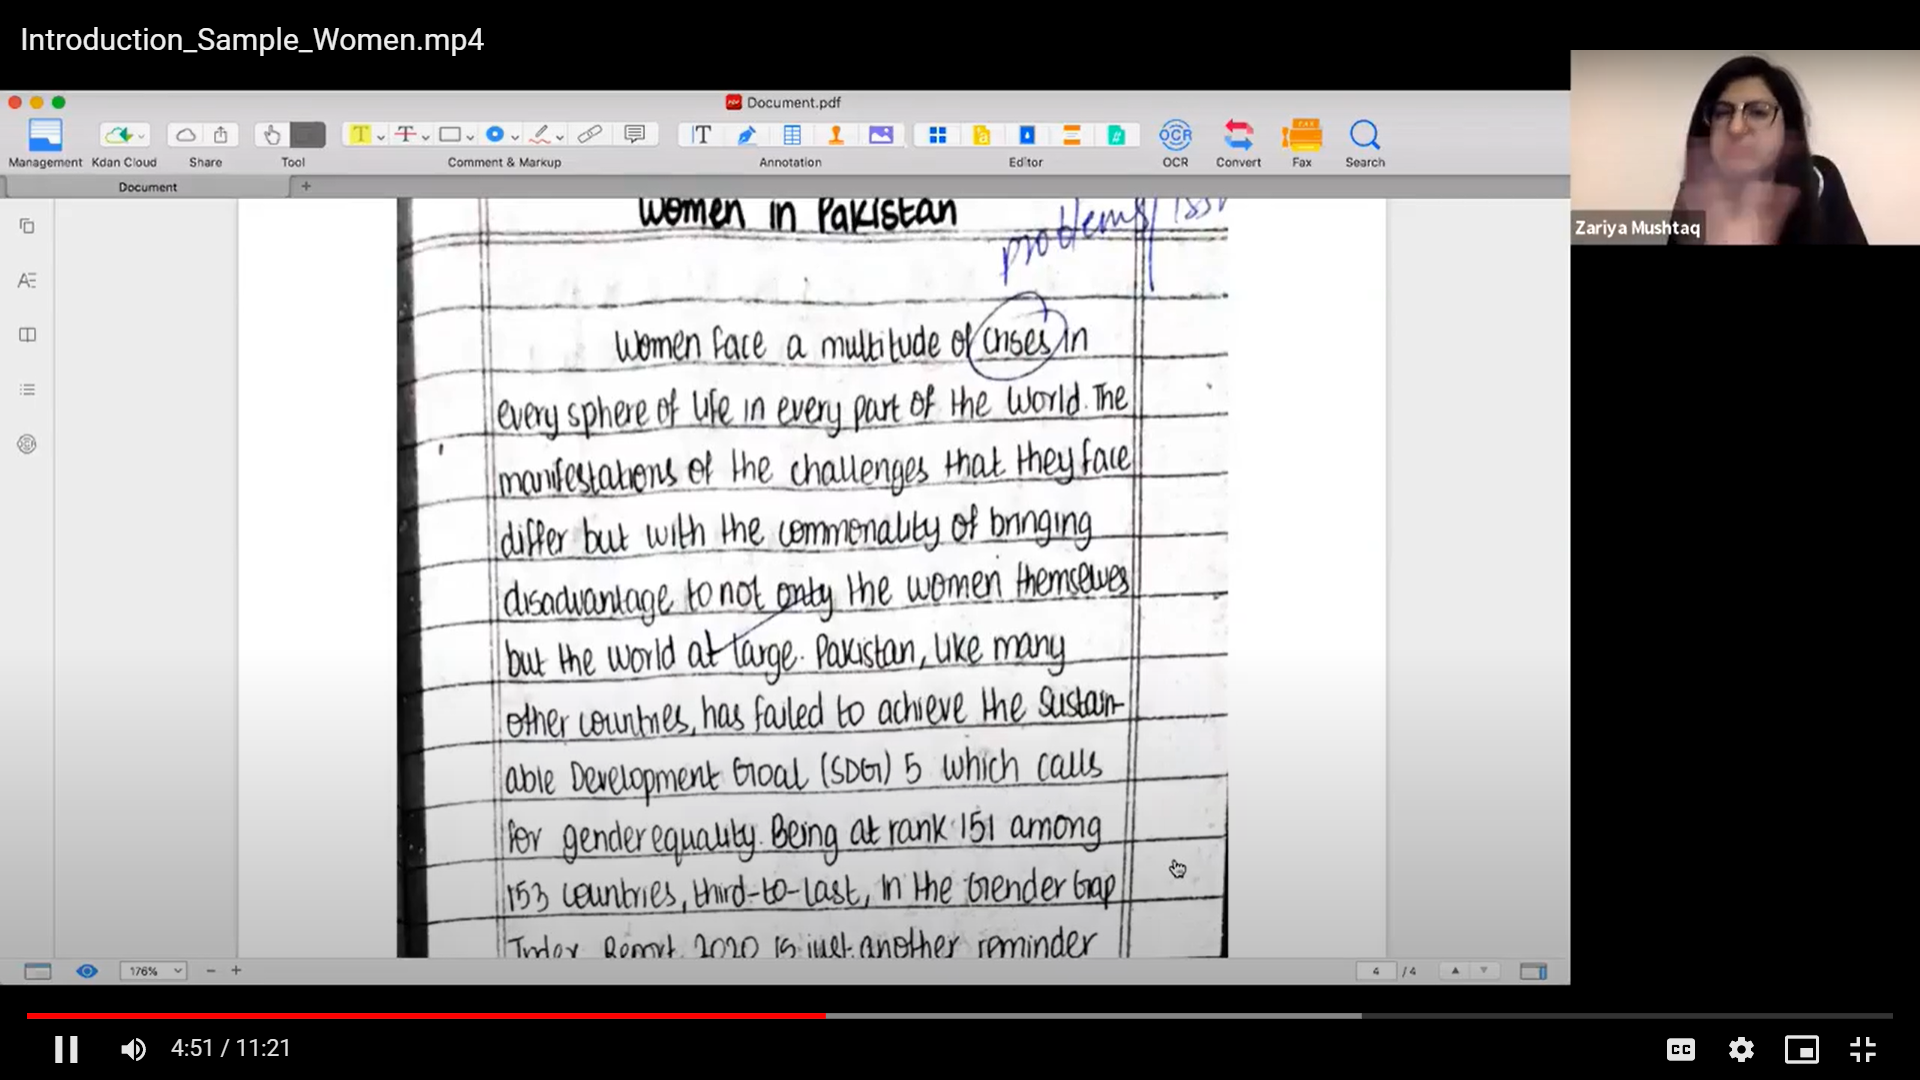 Introduction_Sample_Women.mp4
Document.pdf
Management
Kdan Cloud
Share
Tool
Comment & Markup
Annotation
Editor
OCR
OCR
Convert
FAX
Fax
Search
Document
Zariya Mushtaq
Women in Pakistan
problems/
Women face a multitude of crises in
every sphere of life in every part of the world. The
manifestations of the challenges that they face
differ but with the commonality of bringing
disadvantage to not only the women themselves
but the world at large. Pakistan, like many
other countries, has failed to achieve the Sustain-
able Development Goal (SDG) 5 which calls
for gender equality. Being at rank 151 among
153 countries, third-to-last, in the Gender Gap
Index Report 2020 is just another reminder
176%
4 / 4
4:51 / 11:21
CC